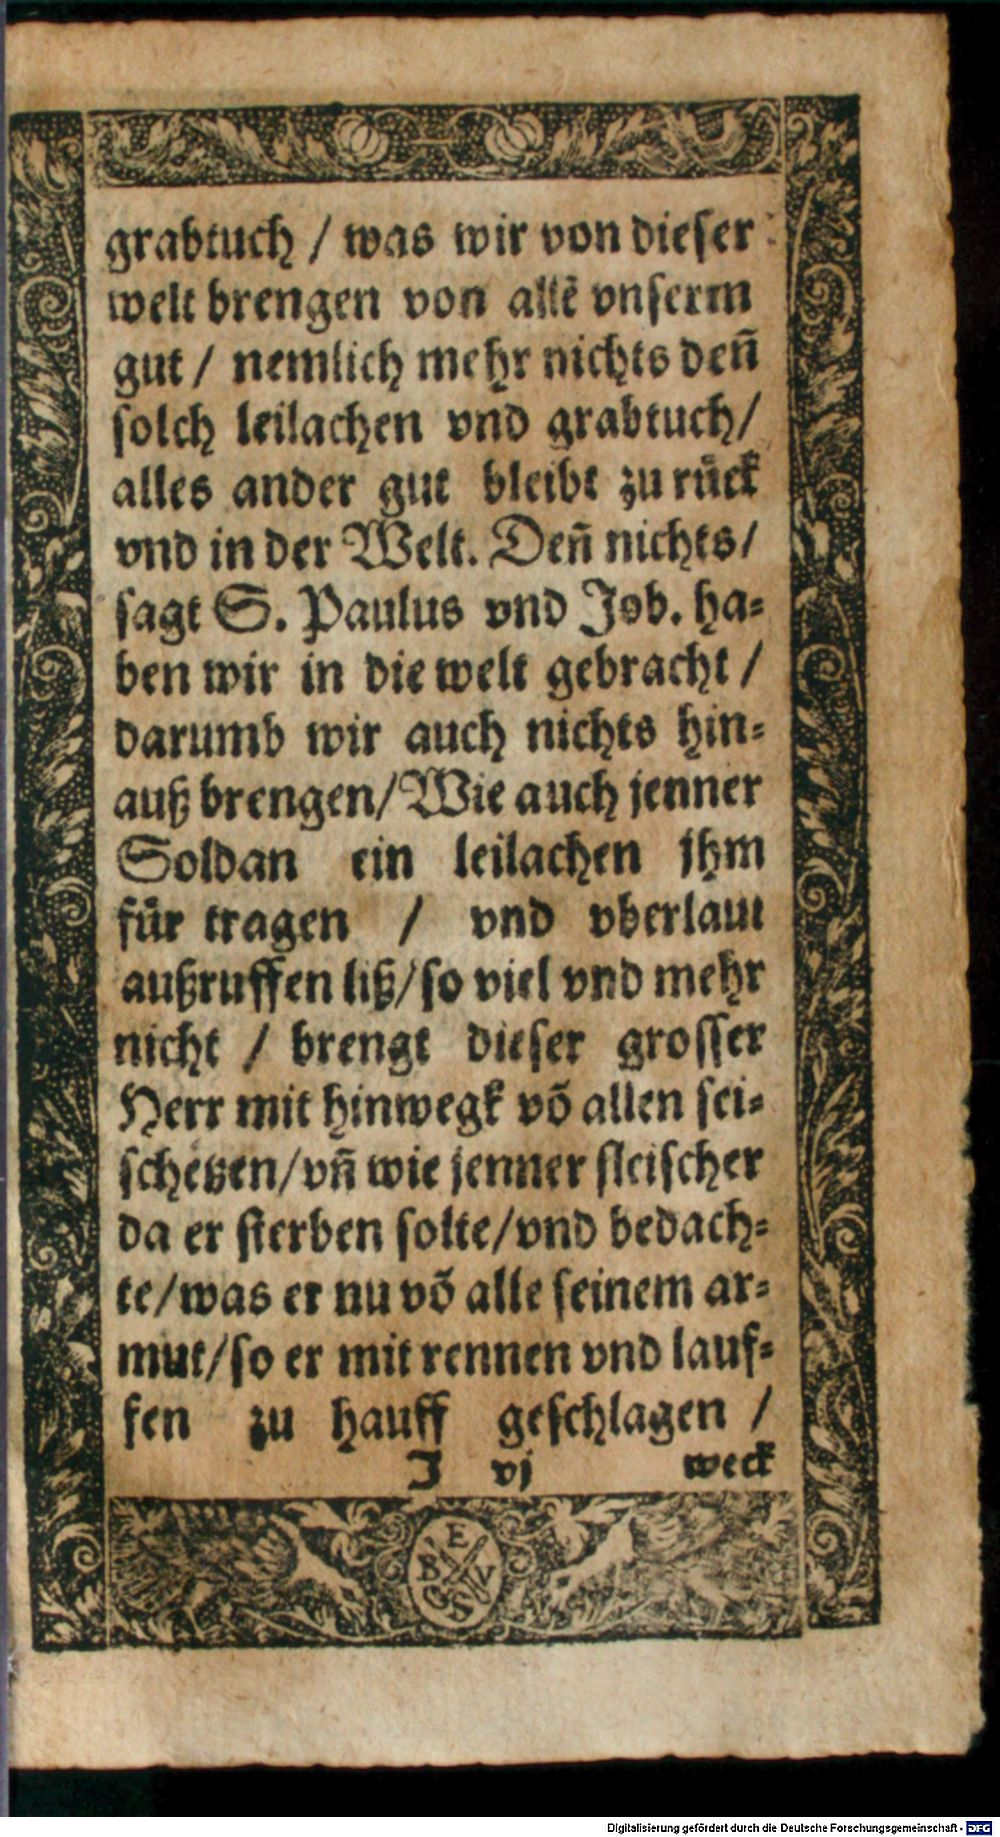 grabtuch / was wir von dieser
welt brengen von allẽ vnserm
gut / nemlich mehr nichts deñ
solch leilachen vnd grabtuch/
alles ander gut bleibt zu ruͤck
vnd in der Welt. Deñ nichts/
sagt S. Paulus vnd Job. ha-
ben wir in die welt gebracht /
darumb wir auch nichts hin-
auß brengen/ Wie auch jenner
Soldan ein leilachen jhm
fuͤr tragen / vnd vberlaut
außruffen liß/ so viel vnd mehr
nicht / brengt dieser grosser
Herr mit hinwegk võ allen sei-
schetzen/ vñ wie jenner fleischer
da er sterben solte/ vnd bedach-
te/ was er nu võ alle seinem ar-
mut/ so er mit rennen vnd lauf-
fen zu hauff geschlagen /
J vj weck
E
B V
G S
Digitalisierung gefördert durch die Deutsche Forschungsgemeinschaft - DFG